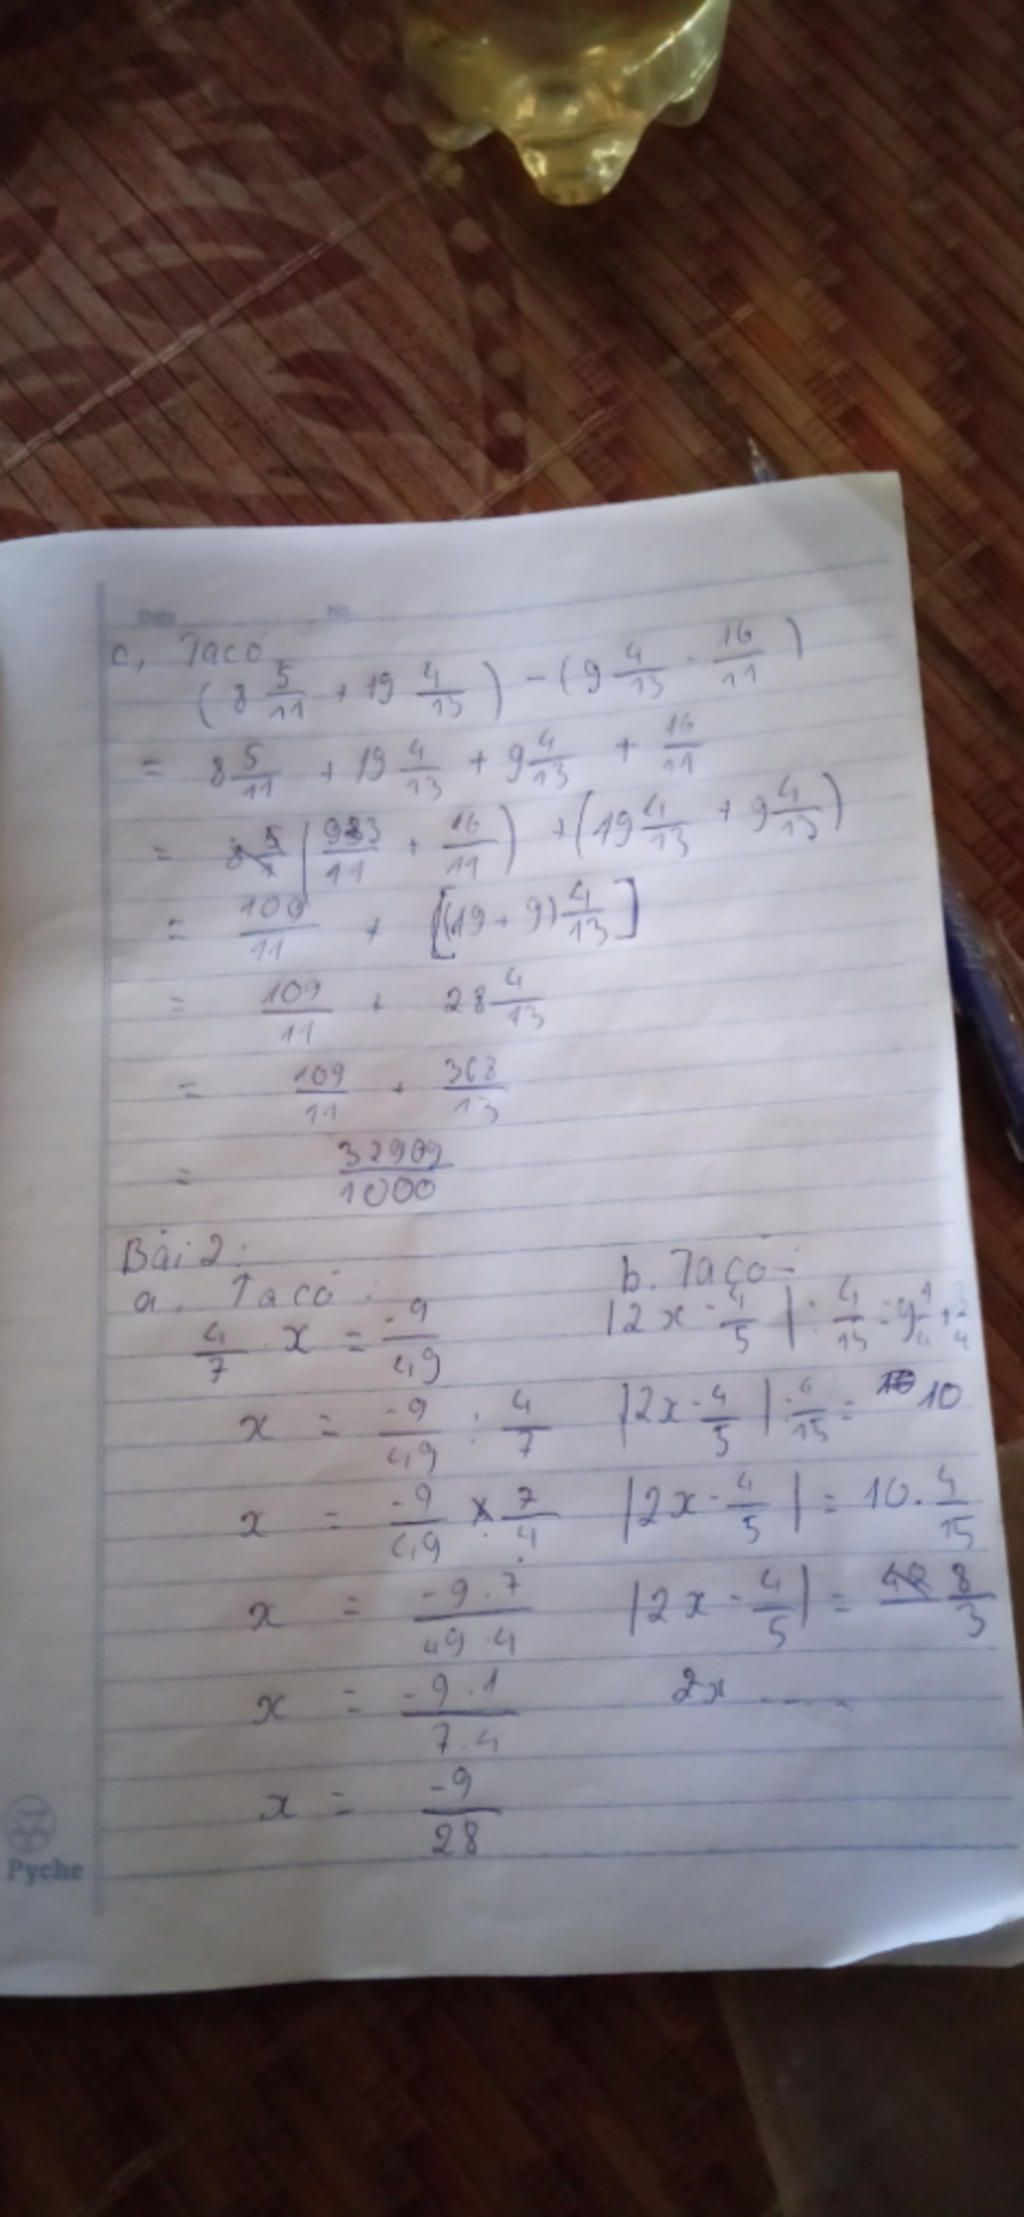 Date No.
c, Ta có
(8 5/11 + 19 4/13) - (9 4/13 - 16/11)
= 8 5/11 + 19 4/13 + 9 4/13 + 16/11
= (93/11 + 16/11) + (19 4/13 + 9 4/13)
= 109/11 + [(19 + 9) 4/13]
= 109/11 + 28 4/13
= 109/11 + 368/13
= 32909/1000
Bài 2:
a, Ta có:
4/7 . x = -9/49
x = -9/49 : 4/7
x = -9/49 . 7/4
x = -9.7/49.4
x = -9.1/7.4
x = -9/28
b. Ta có:
|2x - 4/5| : 4/15 = 9 1/4 + 3/4
|2x - 4/5| : 4/15 = 10
|2x - 4/5| = 10 . 4/15
|2x - 4/5| = 8/3
2x ----
Pyche